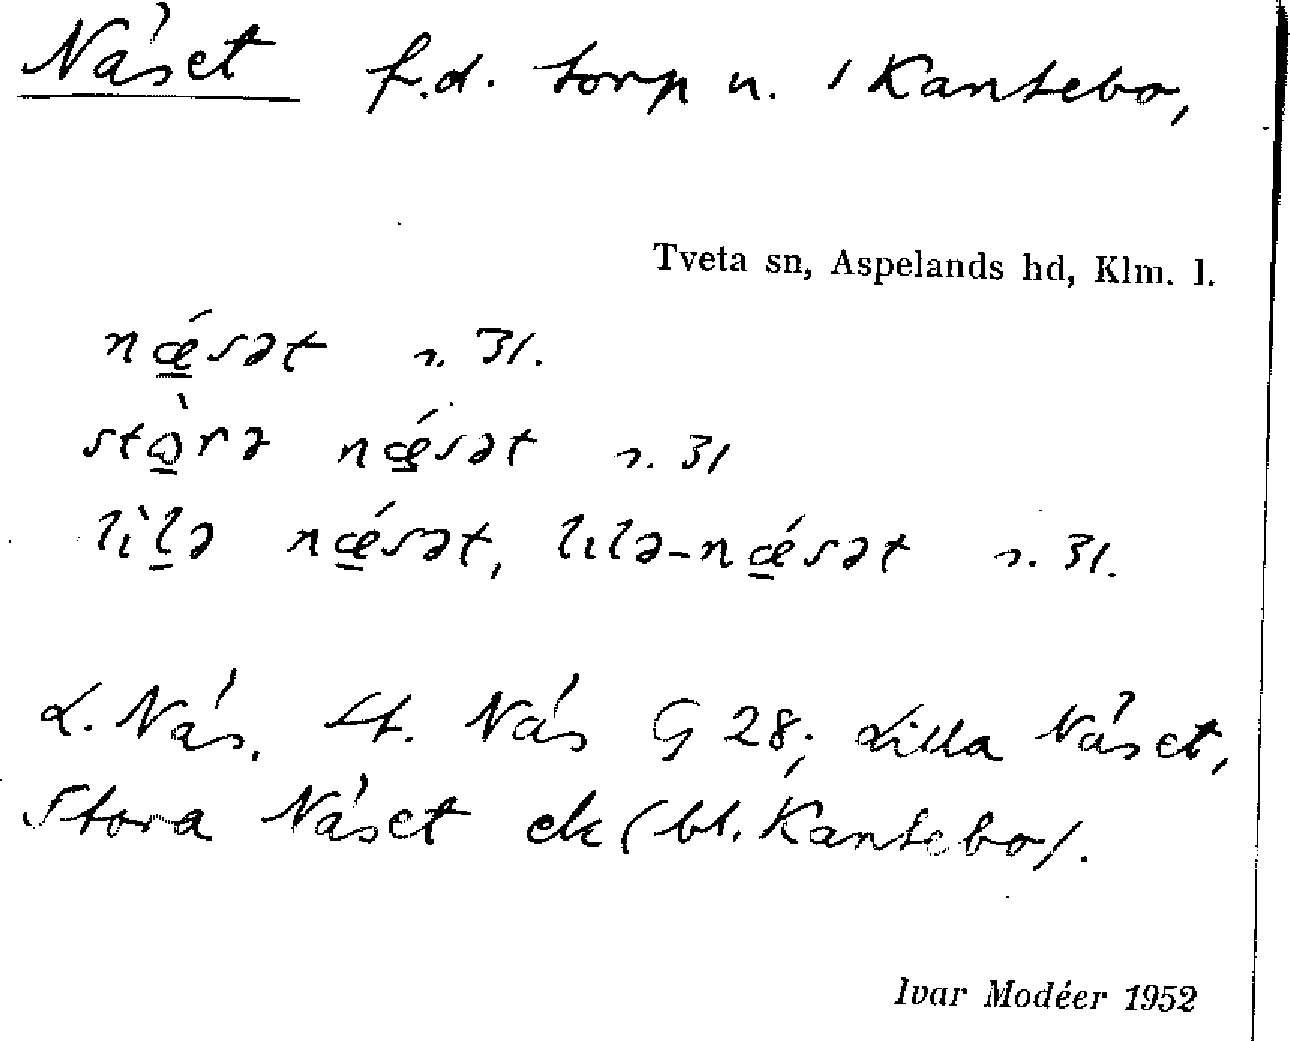 Näset f.d. torp u. 1 Kantebo,
Tveta sn, Aspelands hd, Klm. l.
nǽ̲sət n. 31.
stò̲rə nǽ̲sət n. 31
lìl̲ə nǽ̲sət, lılə-nǽ̲sət n. 31.
L. Näs. St. Näs G 28; Lilla Näset,
Stora Näset ek (bl. Kantebo).
Ivar Modéer 1952